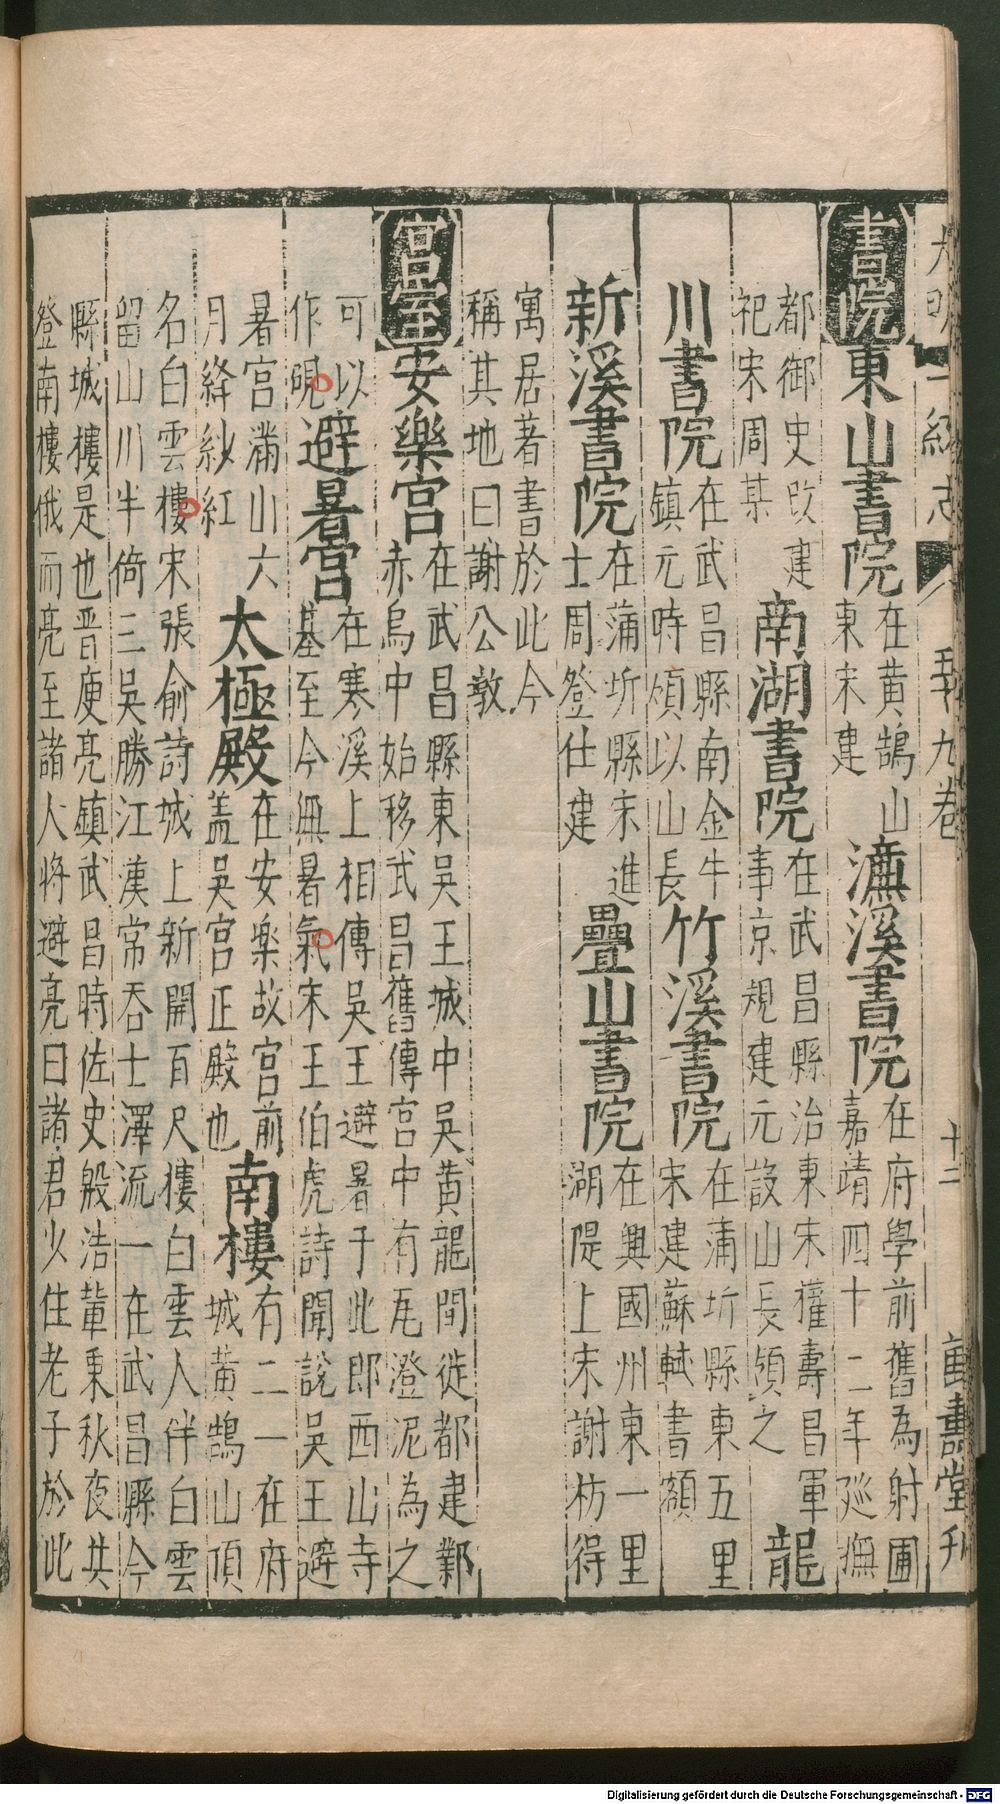 大明一統志 九卷 十二 萬壽堂刊
書院 東山書院 在黃鵠山
東宋建
濂溪書院 在府學前舊為射圃
嘉靖四十二年廵撫
都御史改建
祀宋周某
南湖書院 在武昌縣治東宋權壽昌軍
事京規建元設山長領之
龍
川書院 在武昌縣南金牛
鎮元時頒以山長
竹溪書院 在蒲圻縣東五里
宋建蘇軾書額
新溪書院 在蒲圻縣宋進
士周登仕建
疊山書院 在興國州東一里
湖隄上宋謝枋得
寓居著書於此今
稱其地曰謝公墩
宮室 安樂宮 在武昌縣東吳王城中吳黃龍間徙都建鄴
赤烏中始移武昌舊傳宮中有瓦澄泥為之
可以
作硯
避暑宮 在寒溪上相傳吳王避暑于此郎西山寺
基至今無暑氣宋王伯虎詩聞說吳王避
暑宮滿山六
月絳紗紅
太極殿 在安樂故宮前
盖吳宮正殿也
南樓 有二一在府
城黃鵠山頂
名白雲樓宋張俞詩城上新開百尺樓白雲人伴白雲
留山川半倚三吳勝江漢常吞士澤流一在武昌縣今
縣城樓是也晉庾亮鎮武昌時佐史殷浩輩秉秋夜共
登南樓俄而亮至諸人將避亮曰諸君少住老子於此
Digitalisierung gefördert durch die Deutsche Forschungsgemeinschaft - DFG